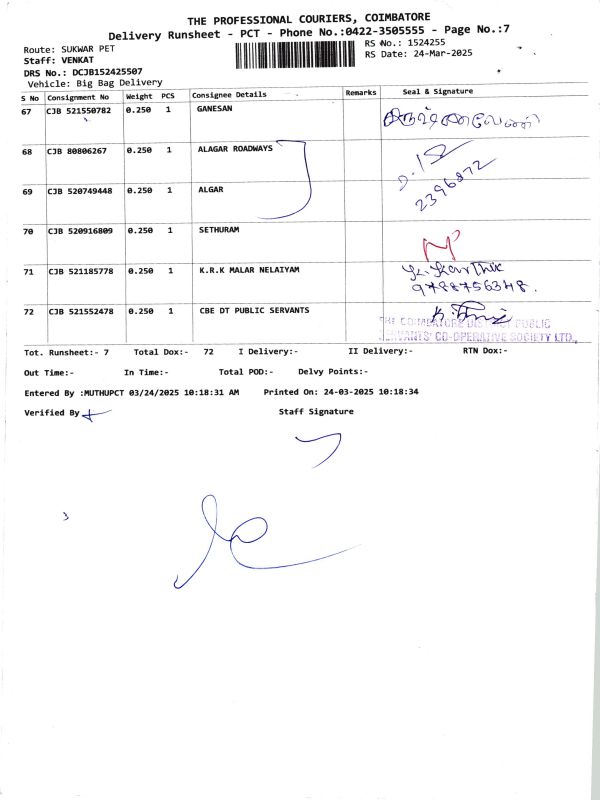 THE PROFESSIONAL COURIERS, COIMBATORE
Delivery Runsheet - PCT - Phone No.:0422-3505555 - Page No.:7
Route: SUKWAR PET
RS No.: 1524255
Staff: VENKAT
RS Date: 24-Mar-2025
DRS No.: DCJB152425507
Vehicle: Big Bag Delivery
S No Consignment No Weight PCS Consignee Details Remarks Seal & Signature
67 CJB 521550782 0.250 1 GANESAN
68 CJB 80806267 0.250 1 ALAGAR ROADWAYS
69 CJB 520749448 0.250 1 ALGAR 2396872
70 CJB 520916809 0.250 1 SETHURAM
71 CJB 521185778 0.250 1 K.R.K MALAR NELAIYAM K. Karthik
9788756348.
72 CJB 521552478 0.250 1 CBE DT PUBLIC SERVANTS
THE COIMBATORE DISTRICT PUBLIC
SERVANTS' CO-OPERATIVE SOCIETY LTD.,
Tot. Runsheet:- 7 Total Dox:- 72 I Delivery:- II Delivery:- RTN Dox:-
Out Time:- In Time:- Total POD:- Delvy Points:-
Entered By :MUTHUPCT 03/24/2025 10:18:31 AM Printed On: 24-03-2025 10:18:34
Verified By Staff Signature